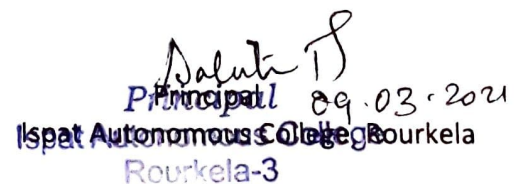 Principal 09.03.2021
Principal
Ispat Autonomous College, Rourkela
Ispat Autonomous College
Rourkela-3